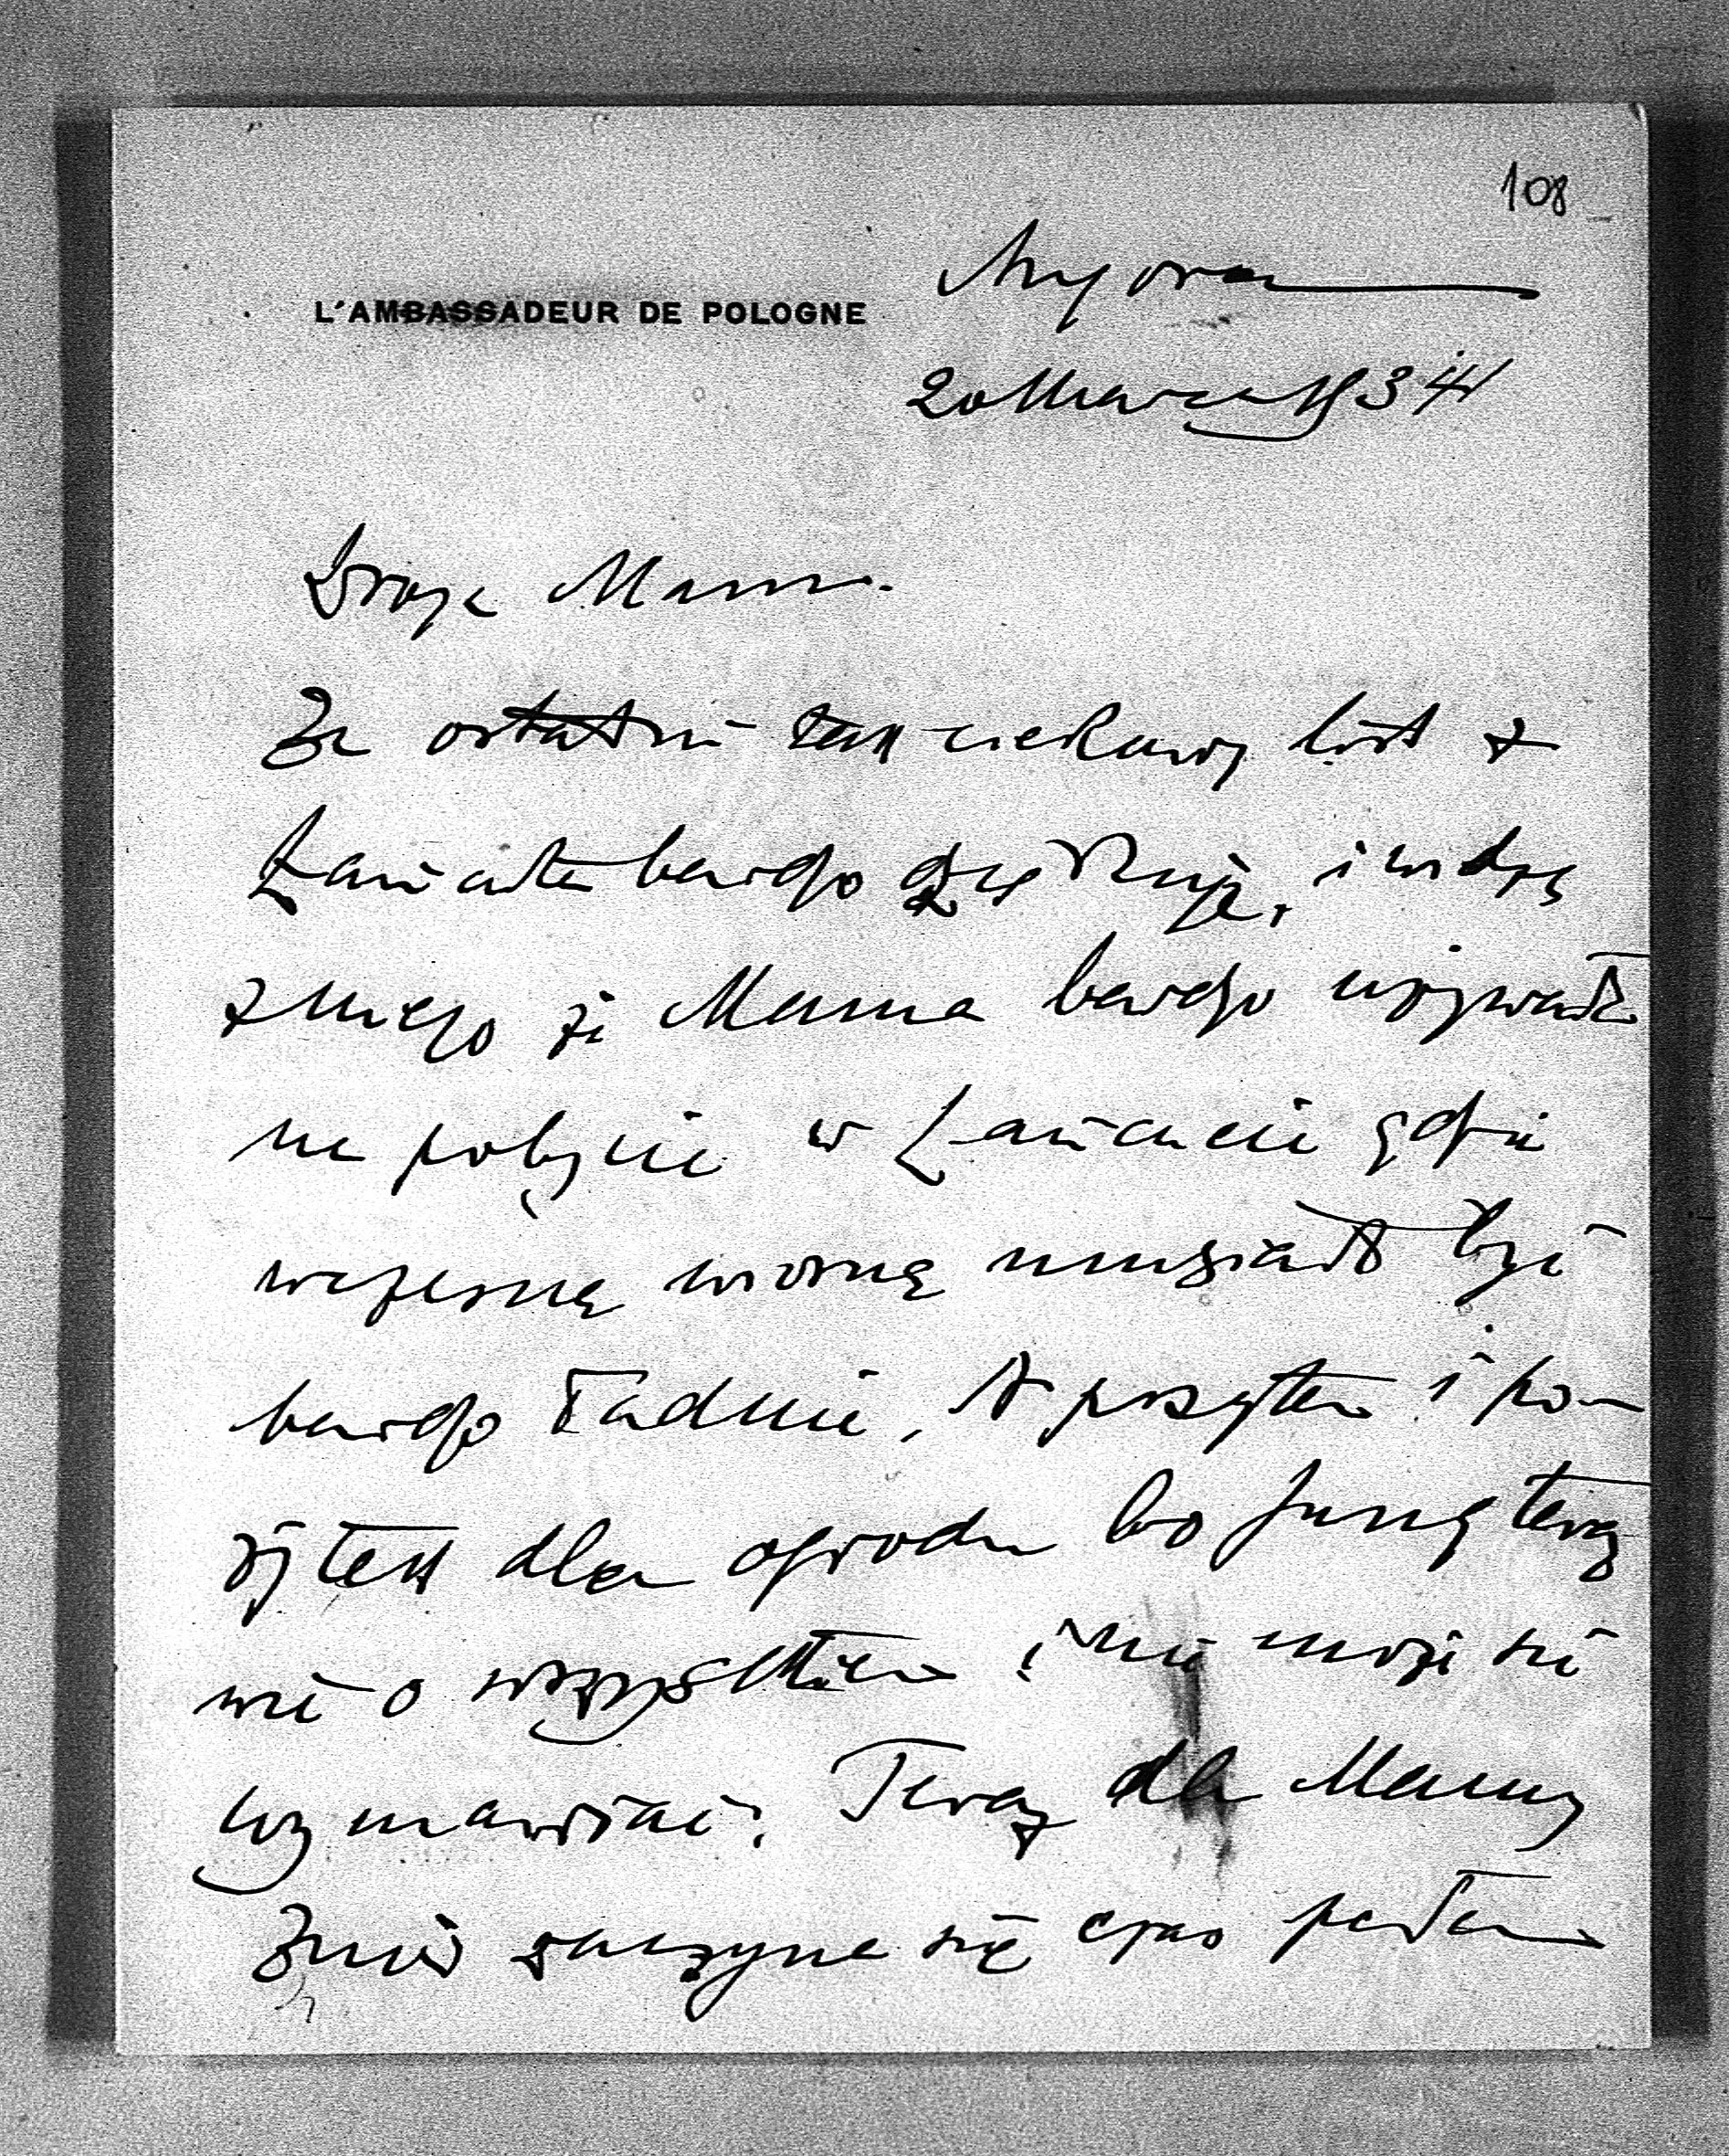 108
L'AMBASSADEUR DE POLOGNE
Angora
20 Marca 1934
Droga Mamo.
Za ostatni tak ciekawy list z
Łańcuta bardzo dziękuję, i widzę
z niego że Mama bardzo używała
na pobycie w Łańcucie gdzie
wczesną wiosną musiało być
bardzo ładnie, A przytem i po-
żytek dla ogrodu bo teraz
wie o wszystkiem i nie może się
wymawiać. Teraz dla Mamy
znów zaczyna się czas pełen